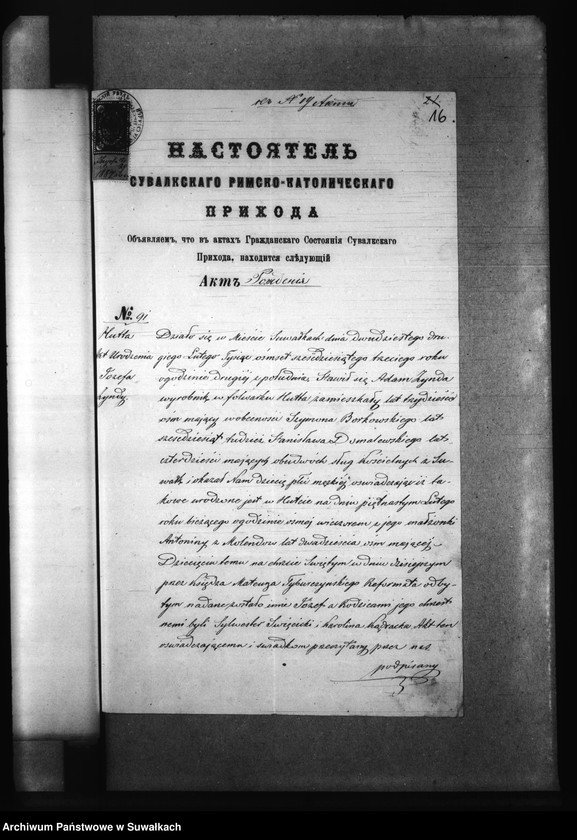 къ № 19 Акта
21
16.
НАСТОЯТЕЛЬ
СУВАЛКСКАГО РИМСКО-КАТОЛИЧЕСКАГО
ПРИХОДА
Объявляемъ, что въ актахъ Гражданскаго Состоянія Сувалкскаго
Прихода, находится слѣдующій
Актъ Рожденія
№ 91
Hutta
Akt Urodzenia
Józefa
Zyndy.
Działo się w Mieście Suwałkach dnia dwudziestego dru-
giego Lutego Tysiąc ośmset sześćdziesiątego trzeciego roku
o godzinie drugiej z południa. Stawił się Adam Zynda
wyrobnik, w folwarku Hutta zamieszkały lat trzydzieści
ośm mający w obecności Szymona Borkowskiego lat
sześćdziesiąt tudzież Stanisława Domalewskiego lat
czterdzieści mających, obudwóch sług Kościelnych z Su-
wałk i okazał Nam dziecię płci męskiej oświadczając iż ta-
kowe urodzone jest w Hutcie na dniu piętnastym Lutego
roku bieżącego o godzinie ósmej wieczorem z jego małżonki
Antoniny z Molendów lat dwadzieścia ośm mającej.
Dziecięciu temu na chrzcie Świętym w dniu dzisiejszym
przez Księdza Mateusza Tyburczyńskiego Reformata odby-
tym nadane zostało imie Józef a Rodzicami jego chrzest-
nemi byli Sylwester Święcicki i Karolina Akt ten
oświadczającemu i świadkom przeczytany, przez nas
podpisany
Archiwum Państwowe w Suwałkach